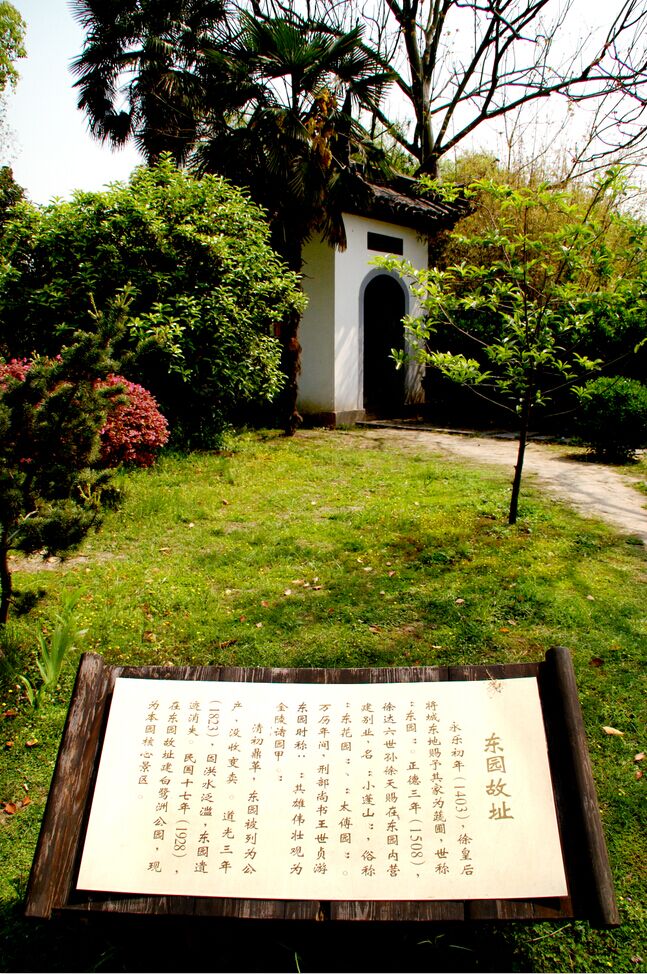 东园故址
永乐初年(1403),徐皇后
将城东地赐予其家为蔬圃,世称
:东园:。正德三年(1508),
徐达六世孙徐天赐在东园内营
建别业,名:小蓬山:,俗称
:东花园:、:太傅园:。
万历年间,刑部尚书王世贞游
东园时称::其雄伟壮观为
金陵诸园甲。:
清初鼎革,东园被列为公
产,没收变卖。道光三年
(1823),因洪水泛滥,东园遗
迹消失。民国十七年(1928),
在东园故址建白鹭洲公园,现
为本园核心景区。